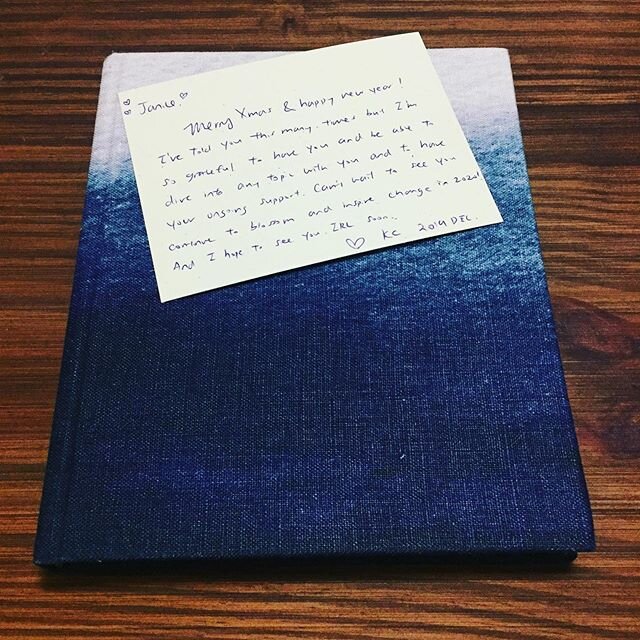 Janice!
Merry Xmas & happy new year!
I've told you this many times but I'm
so grateful to have you and be able to
dive into any topic with you and to have
your ongoing support. Can't wait to see you
continue to blossom and inspire change in 2020!
And I hope to see you IRL soon.
KC 2019 DEC.